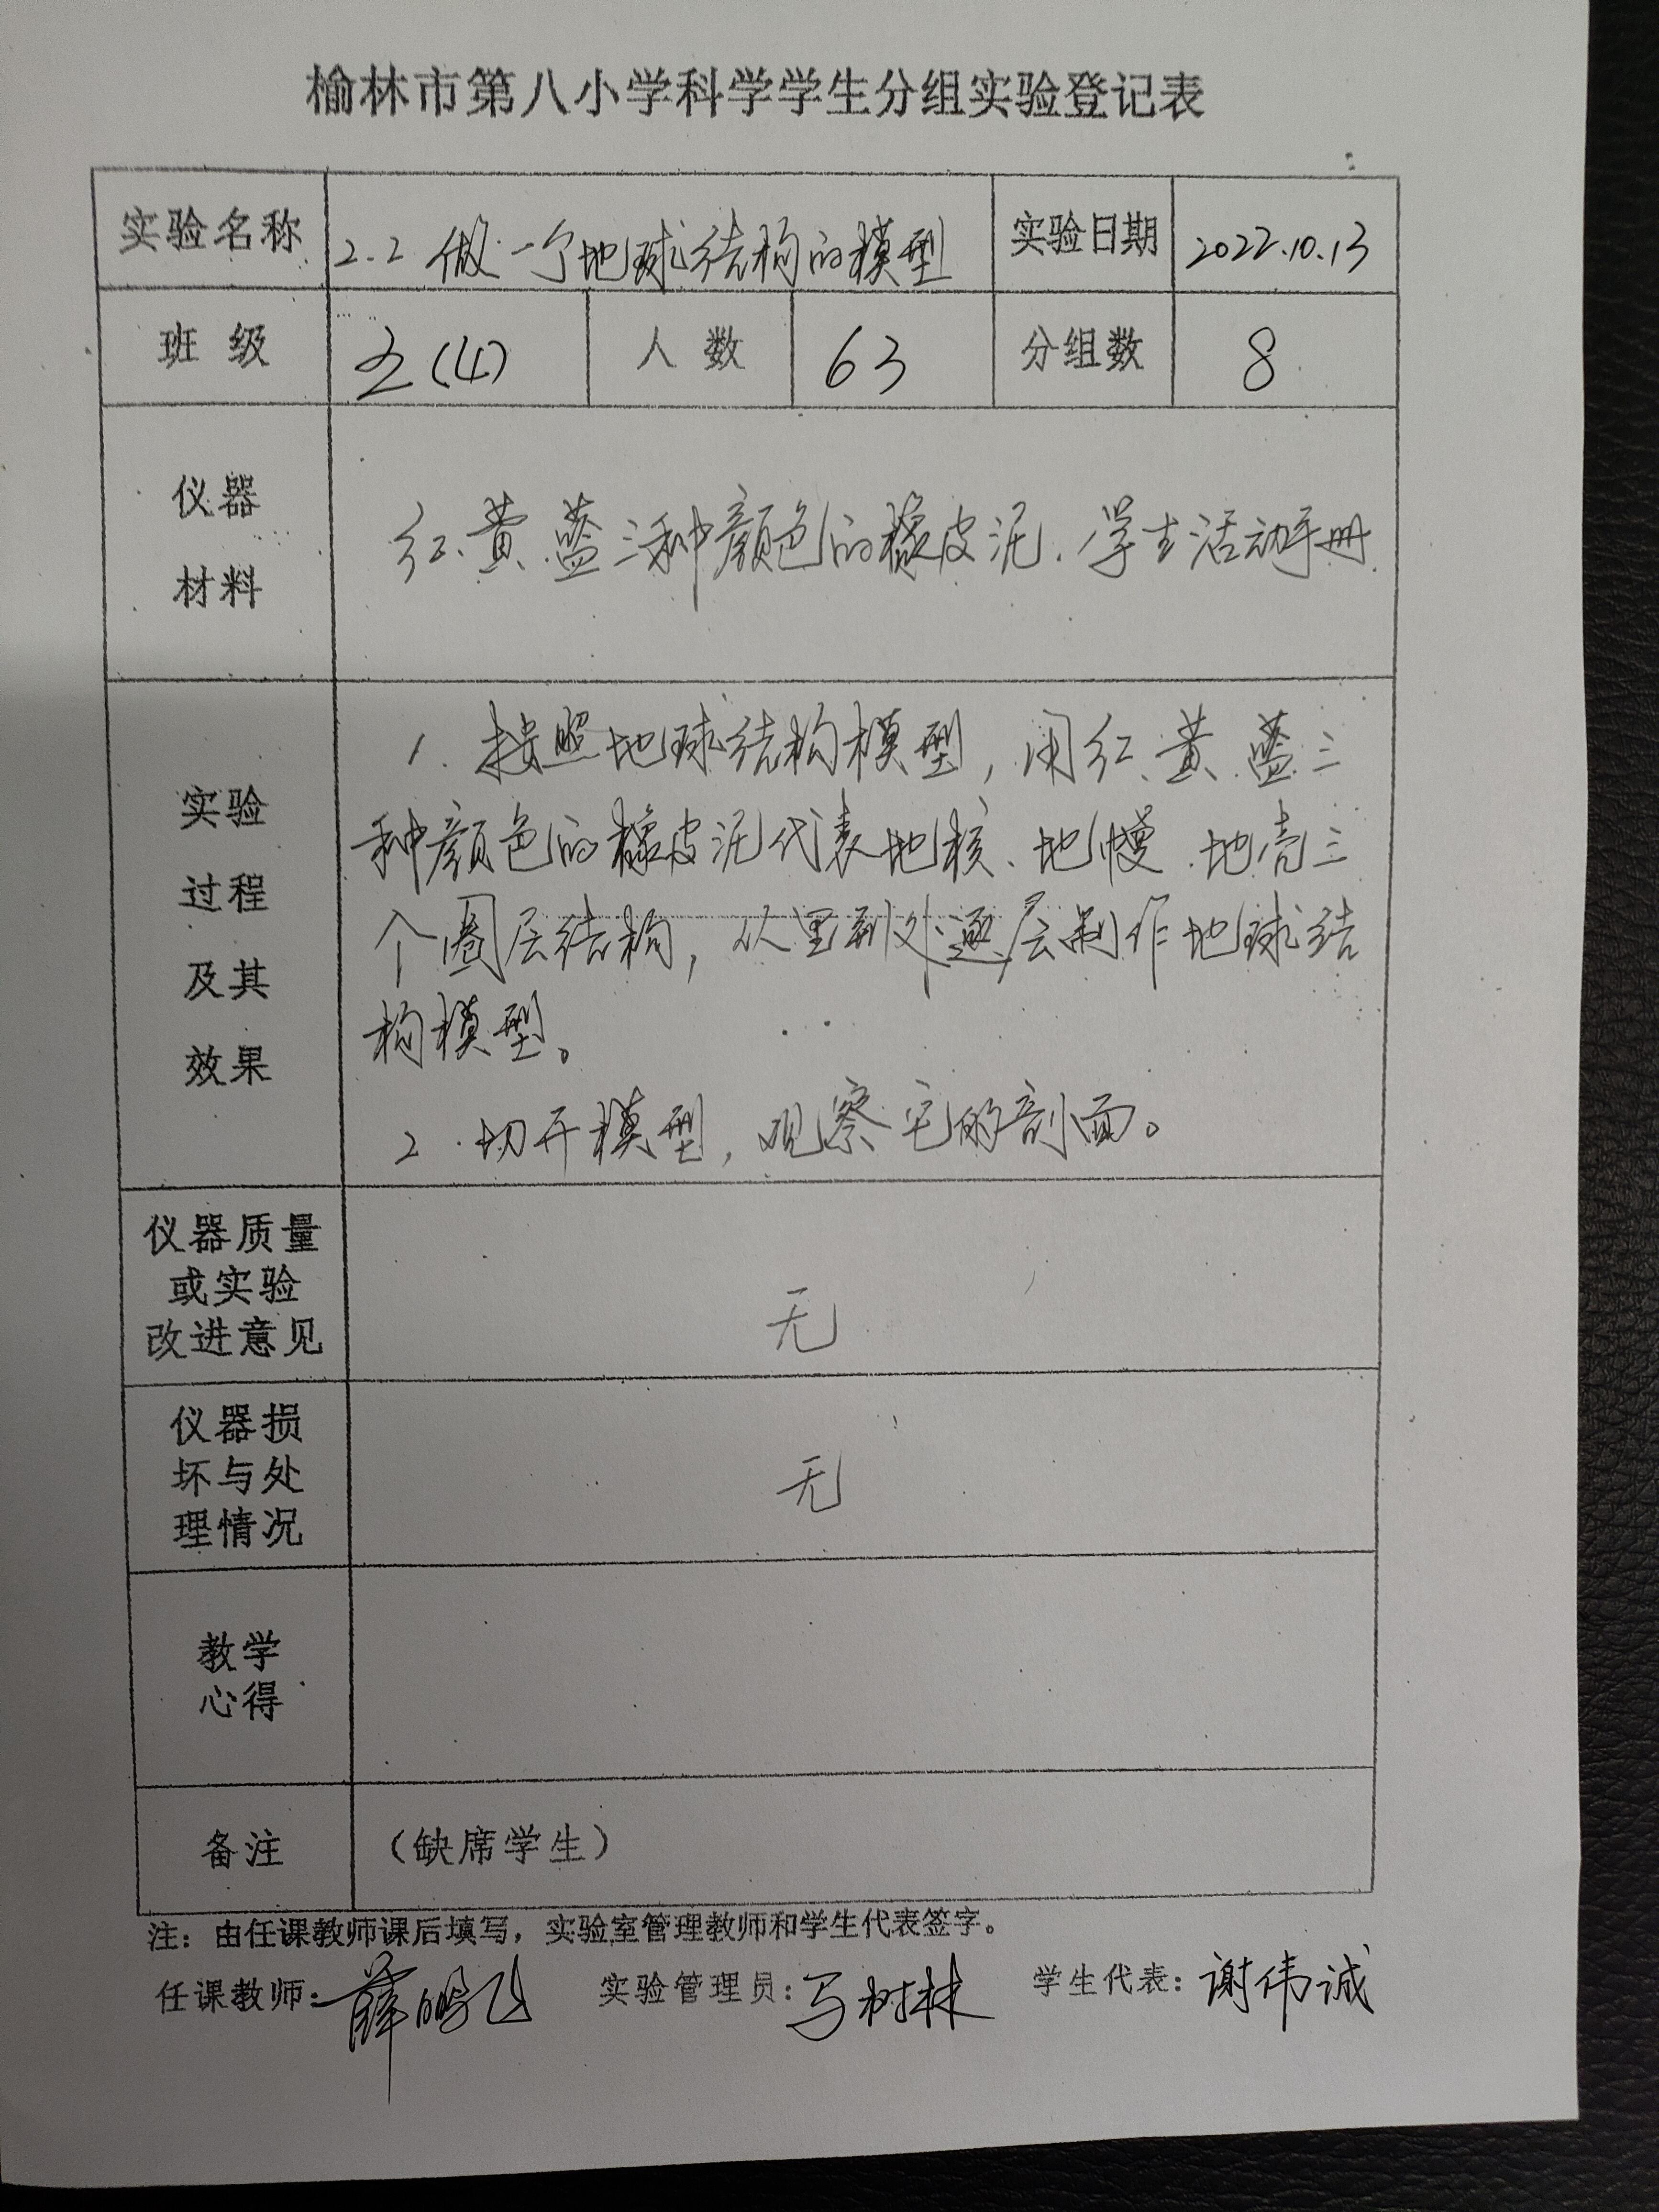 榆林市第八小学科学学生分组实验登记表
实验名称 2.2 做一个地球结构的模型 实验日期 2022.10.13
班 级 五(4) 人 数 63 分组数 8
仪器
材料
红、黄、蓝三种颜色的橡皮泥、学生活动手册
实验
过程
及其
效果
1. 按照地球结构模型,用红、黄、蓝三
种颜色的橡皮泥代表地核、地幔、地壳三
个圈层结构,从里到外逐层制作地球结
构模型。
2. 切开模型,观察它的剖面。
仪器质量
或实验
改进意见
无
仪器损
坏与处
理情况
无
教学
心得
备注 (缺席学生)
注:由任课教师课后填写,实验室管理教师和学生代表签字。
任课教师:薛鹏飞 实验管理员:马树林 学生代表:谢伟诚